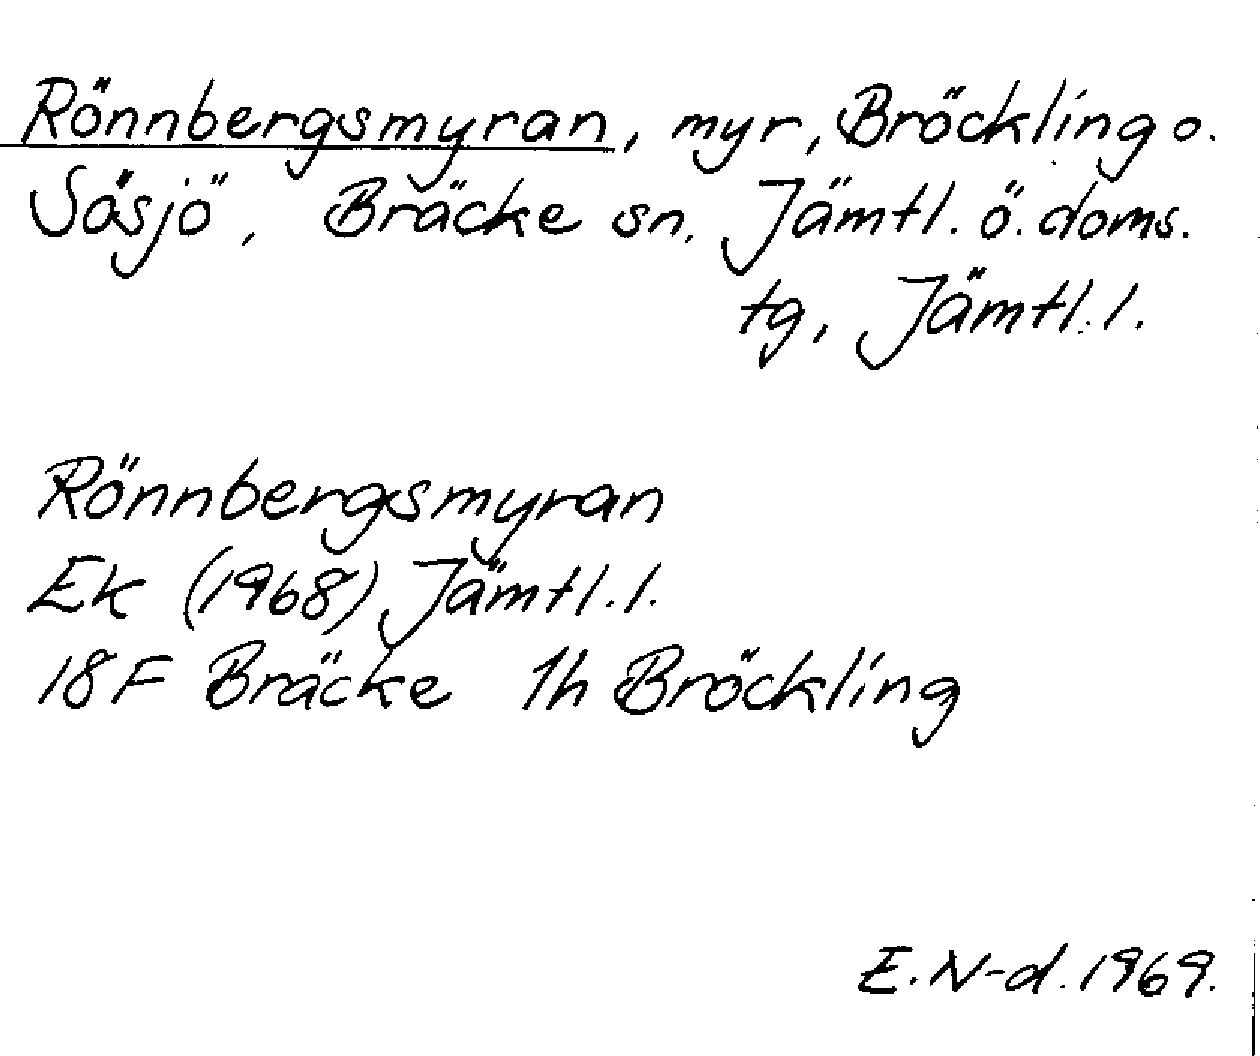 Rönnbergsmyran, myr, Bröckling o.
Sösjö, Bräcke sn, Jämtl. ö. doms.
tg, Jämtl. l.
Rönnbergsmyran
Ek (1968) Jämtl. l.
18F Bräcke 1h Bröckling
E. N-d. 1969.